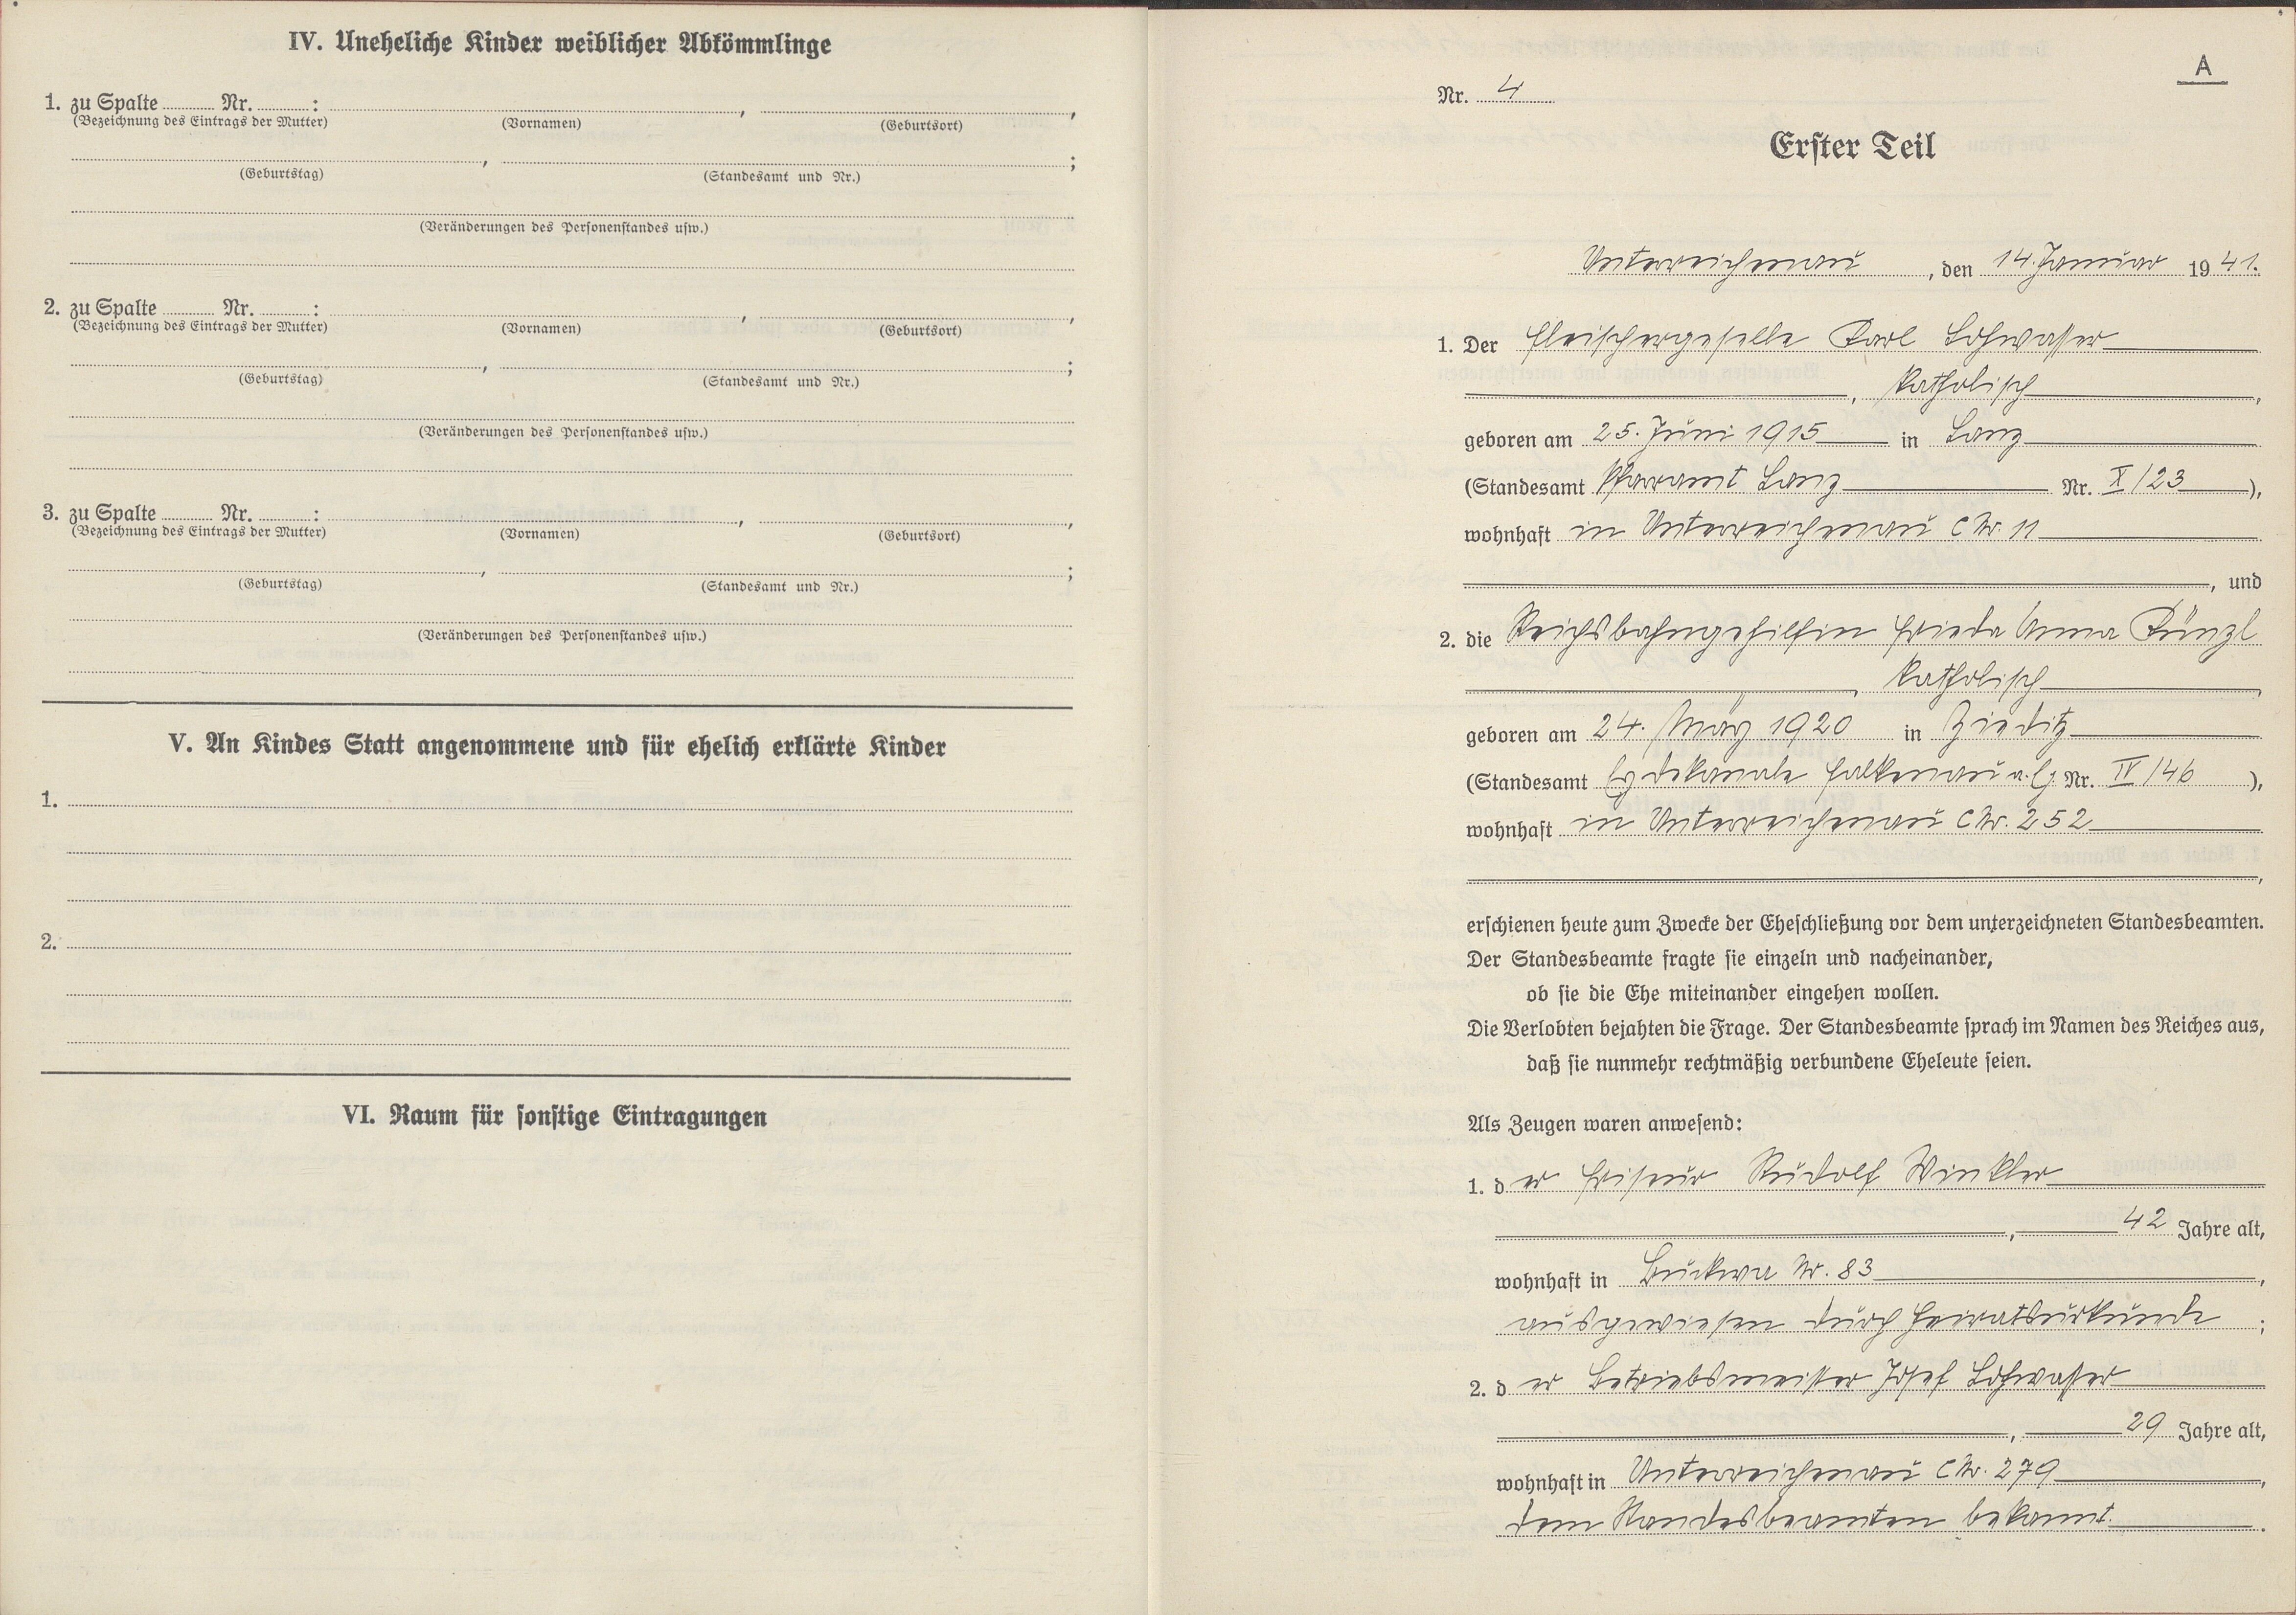 IV. Uneheliche Kinder weiblicher Abkömmlinge
1. zu Spalte Nr. : , ,
(Bezeichnung des Eintrags der Mutter) (Vornamen) (Geburtsort)
, ;
(Geburtstag) (Standesamt und Nr.)
(Veränderungen des Personenstandes usw.)
2. zu Spalte Nr. : , ,
(Bezeichnung des Eintrags der Mutter) (Vornamen) (Geburtsort)
, ;
(Geburtstag) (Standesamt und Nr.)
(Veränderungen des Personenstandes usw.)
3. zu Spalte Nr. : , ,
(Bezeichnung des Eintrags der Mutter) (Vornamen) (Geburtsort)
, ;
(Geburtstag) (Standesamt und Nr.)
(Veränderungen des Personenstandes usw.)
V. An Kindes Statt angenommene und für ehelich erklärte Kinder
1.
2.
VI. Raum für sonstige Eintragungen
A
Nr. 4
Erster Teil
Unterreichenau, den 14. Januar 1941.
1. Der Fleischergeselle Karl Lohwasser
, katholisch,
geboren am 25. Juni 1915 in Lanz
(Standesamt Pfarramt Lanz Nr. X/23),
wohnhaft in Unterreichenau CNr. 11
, und
2. die Reichsbahngehilfin Frieda Anna Künzl
, katholisch,
geboren am 24. März 1920 in Zieditz
(Standesamt Falkenau a. Nr. IV/46),
wohnhaft in Unterreichenau CNr. 252
,
erschienen heute zum Zwecke der Eheschließung vor dem unterzeichneten Standesbeamten.
Der Standesbeamte fragte sie einzeln und nacheinander,
ob sie die Ehe miteinander eingehen wollen.
Die Verlobten bejahten die Frage. Der Standesbeamte sprach im Namen des Reiches aus,
daß sie nunmehr rechtmäßig verbundene Eheleute seien.
Als Zeugen waren anwesend:
1. der Friseur Rudolf Winkler
, 42 Jahre alt,
wohnhaft in Buckwa Nr. 83,
ausgewiesen durch Heiratsurkunde ;
2. der Betriebsmeister Josef Lohwasser
, 29 Jahre alt,
wohnhaft in Unterreichenau CNr. 279,
dem Standesbeamten bekannt.